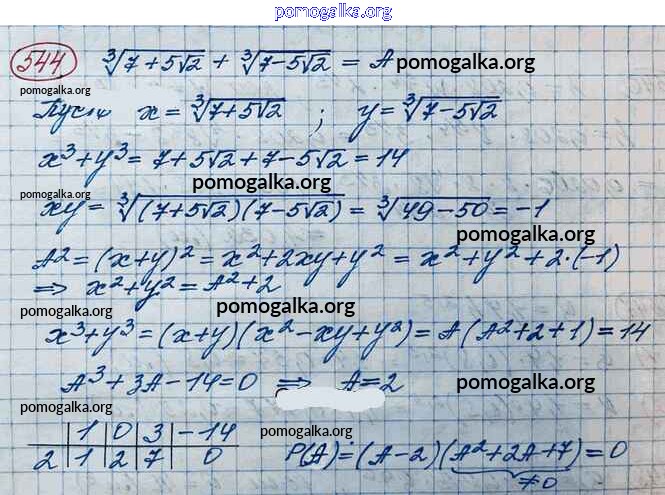 pomogalka.org
544 ∛(7+5√2) + ∛(7-5√2) = A pomogalka.org
pomogalka.org
Пусть x = ∛(7+5√2) ; y = ∛(7-5√2)
x³+y³ = 7+5√2+7-5√2 = 14
pomogalka.org pomogalka.org
xy = ∛((7+5√2)(7-5√2)) = ∛(49-50) = -1
pomogalka.org
A² = (x+y)² = x²+2xy+y² = x²+y²+2·(-1)
⇒ x²+y² = A²+2
pomogalka.org
x³+y³ = (x+y)(x²-xy+y²) = A(A²+2+1) = 14
A³+3A-14=0 ⇒ A=2 pomogalka.org
1 0 3 -14 pomogalka.org
2 1 2 7 0 P(A) = (A-2)(A²+2A+7) = 0
≠0
pomogalka.org